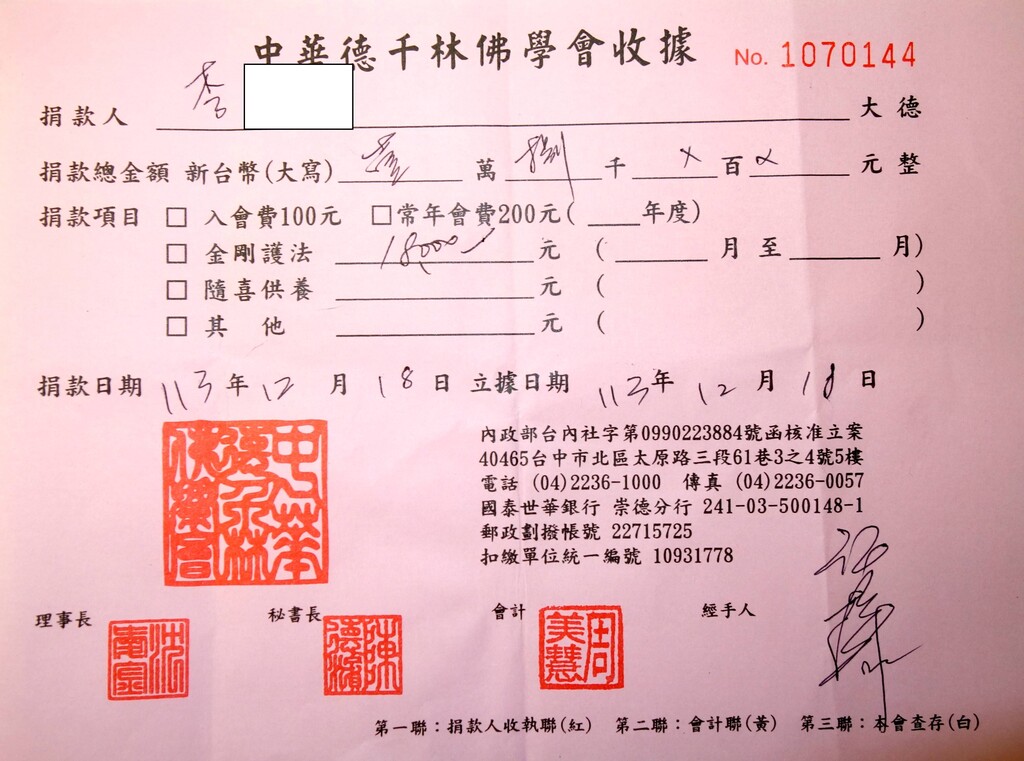 中華德千林佛學會收據 No. 1070144
捐款人 李 大德
捐款總金額 新台幣(大寫) 壹 萬 捌 千 × 百 × 元整
捐款項目 □ 入會費100元 □常年會費200元( 年度)
□ 金剛護法 18,000 元 ( 月至 月)
□ 隨喜供養 元 ( )
□ 其 他 元 ( )
捐款日期 113年 12 月 18 日 立據日期 113年 12 月 18 日
中華德千林佛學會
內政部台內社字第0990223884號函核准立案
40465台中市北區太原路三段61巷3之4號5樓
電話 (04)2236-1000 傳真 (04)2236-0057
國泰世華銀行 崇德分行 241-03-500148-1
郵政劃撥帳號 22715725
扣繳單位統一編號 10931778
理事長 沈 秘書長 陳德濱 會計 周美慧 經手人
第一聯：捐款人收執聯(紅) 第二聯：會計聯(黃) 第三聯：本會查存(白)